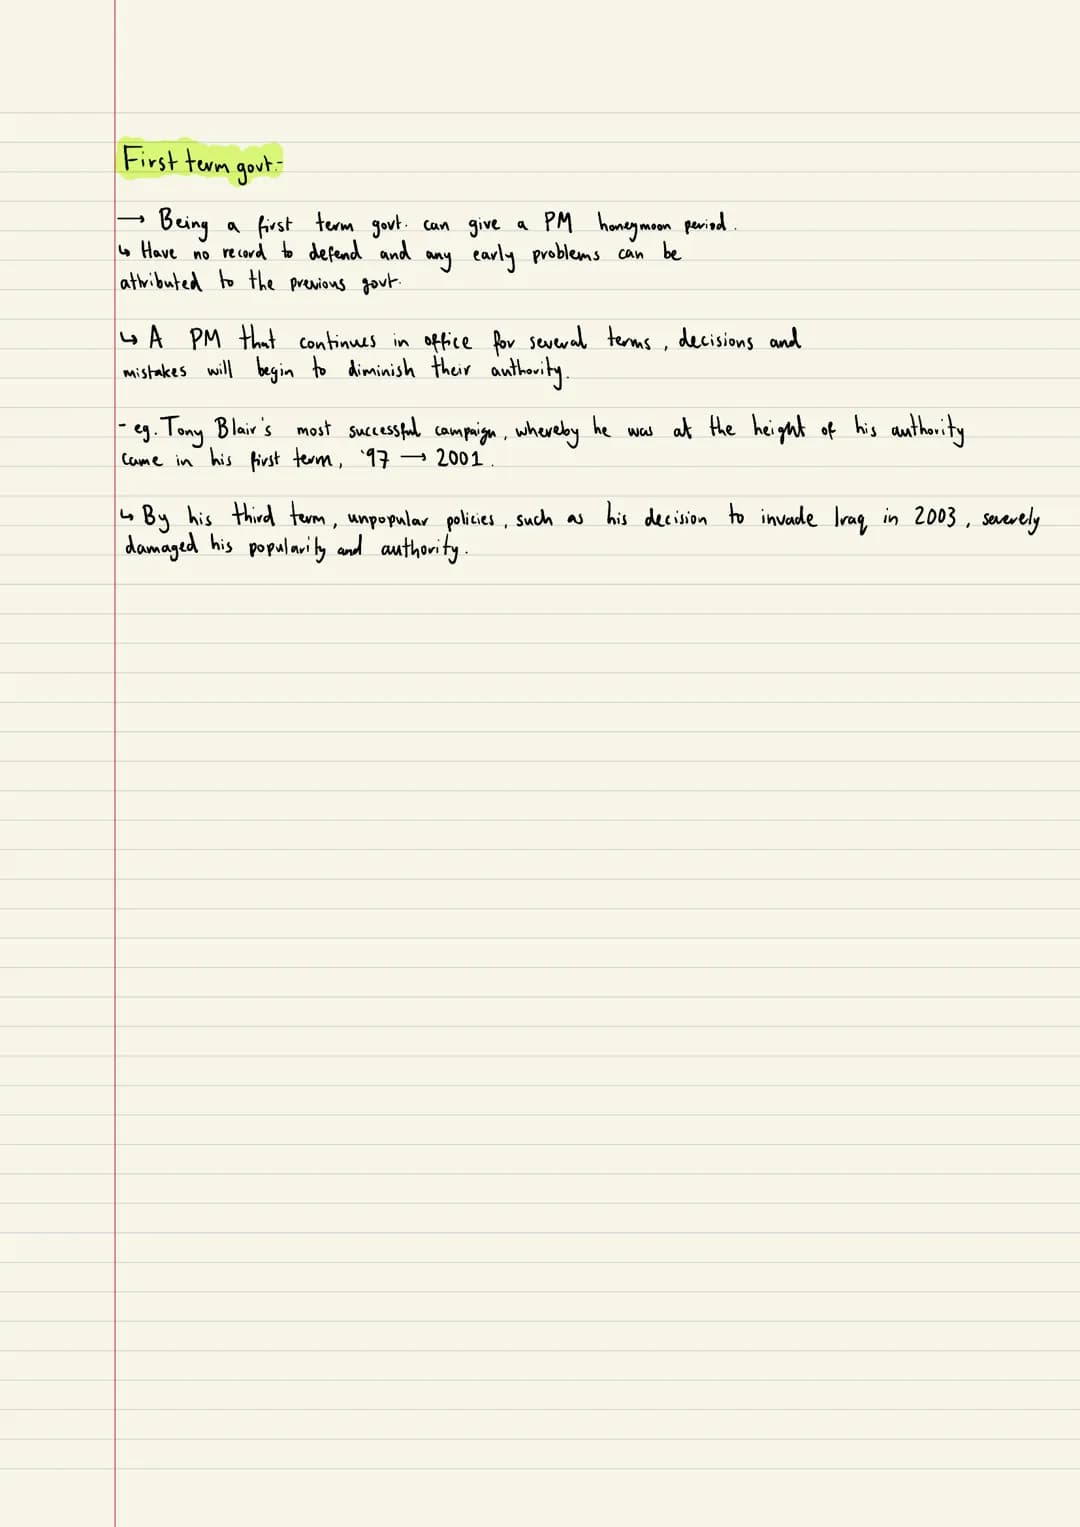 First term govt:-
→ Being a first term govt. can give a PM honeymoon period.
↳ Have no record to defend and any early problems can be
attributed to the previous govt.
↳ A PM that continues in office for several terms, decisions and
mistakes will begin to diminish their authority.
- eg. Tony Blair's most successful campaign, whereby he was at the height of his authority
came in his first term, '97 → 2001.
↳ By his third term, unpopular policies, such as his decision to invade Iraq in 2003, severely
damaged his popularity and authority.